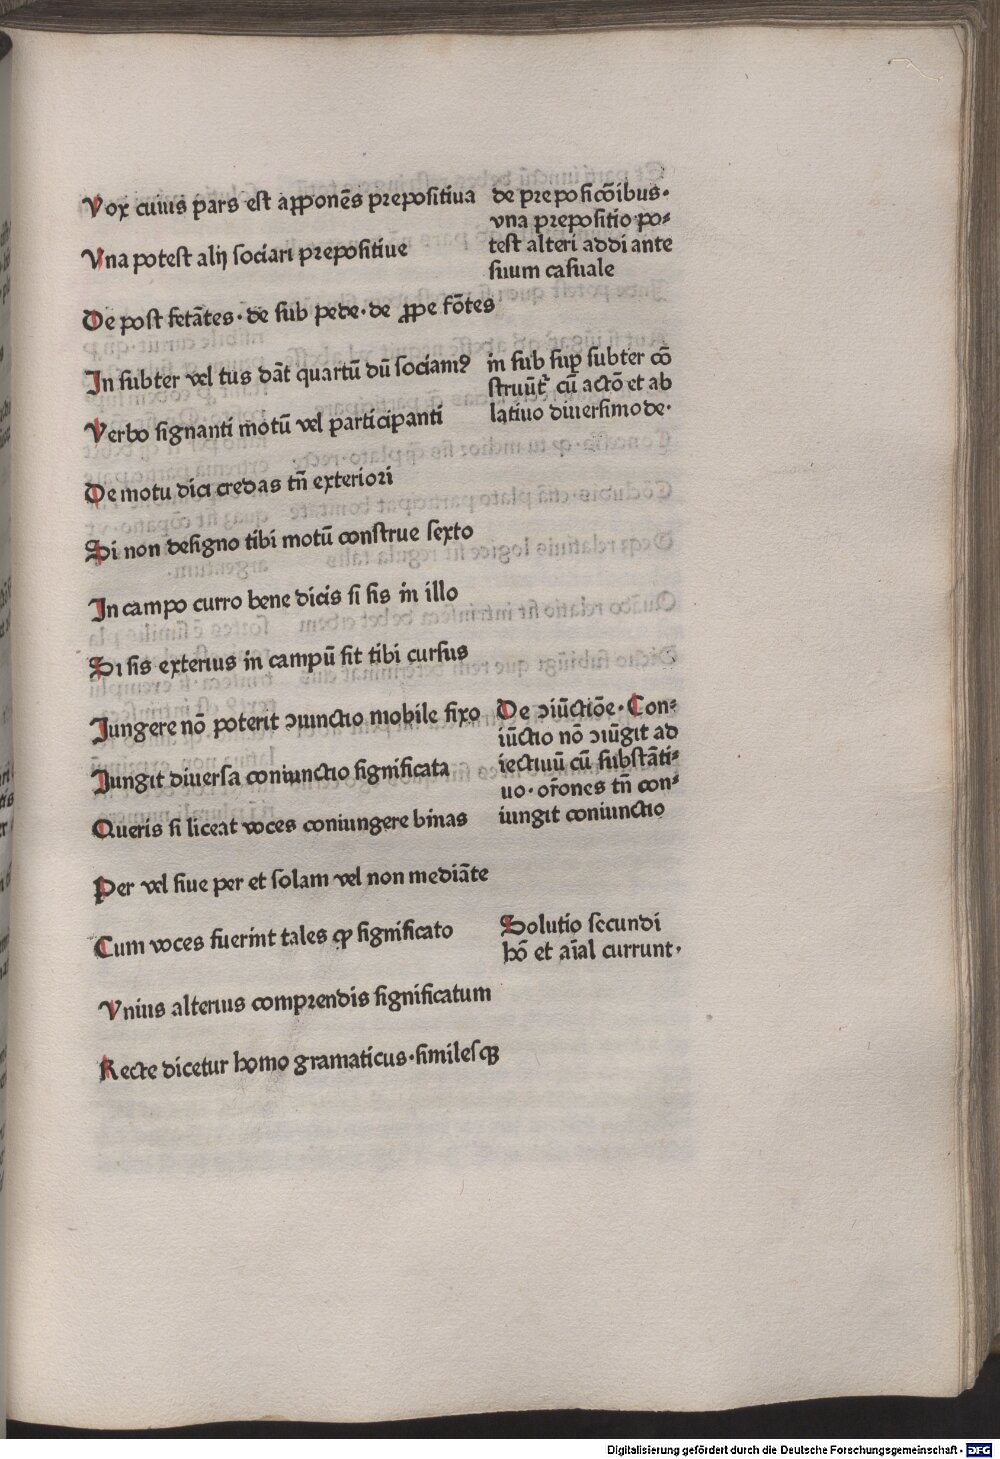 Vox cuius pars est apponēs prepositiua
Vna potest alij sociari prepositiue
De post fetātes · de sub pede · de ꝓpe fōtes
In subter vel tus dāt quartū dū sociamꝰ
Verbo signanti motū vel participanti
De motu dici credas tn̄ exteriori
Si non designo tibi motū construe sexto
In campo curro bene dicis si sis in illo
Si sis exterius in campū sit tibi cursus
Jungere nō poterit ↄiunctio mobile fixo
Jungit diuersa coniunctio significata
Queris si liceat voces coniungere binas
Per vel siue per et solam vel non mediāte
Cum voces fuerint tales ꝙ significato
Vnius alterius comprendis significatum
Recte dicetur homo gramaticus · similesqꝫ
de preposicōibus ·
vna prepositio po⸗
test alteri addi ante
suum casuale
in sub suꝑ subter cō
struūt᷑ cū actō et ab
latiuo diuersimode ·
De ↄiūctiōe · Con⸗
iūctio nō ↄiūgit ad
iectiuū cū substāti⸗
uo · or̄ones tn̄ con⸗
iungit coniunctio
Solutio secundi
hō et aīal currunt ·
Digitalisierung gefördert durch die Deutsche Forschungsgemeinschaft - DFG